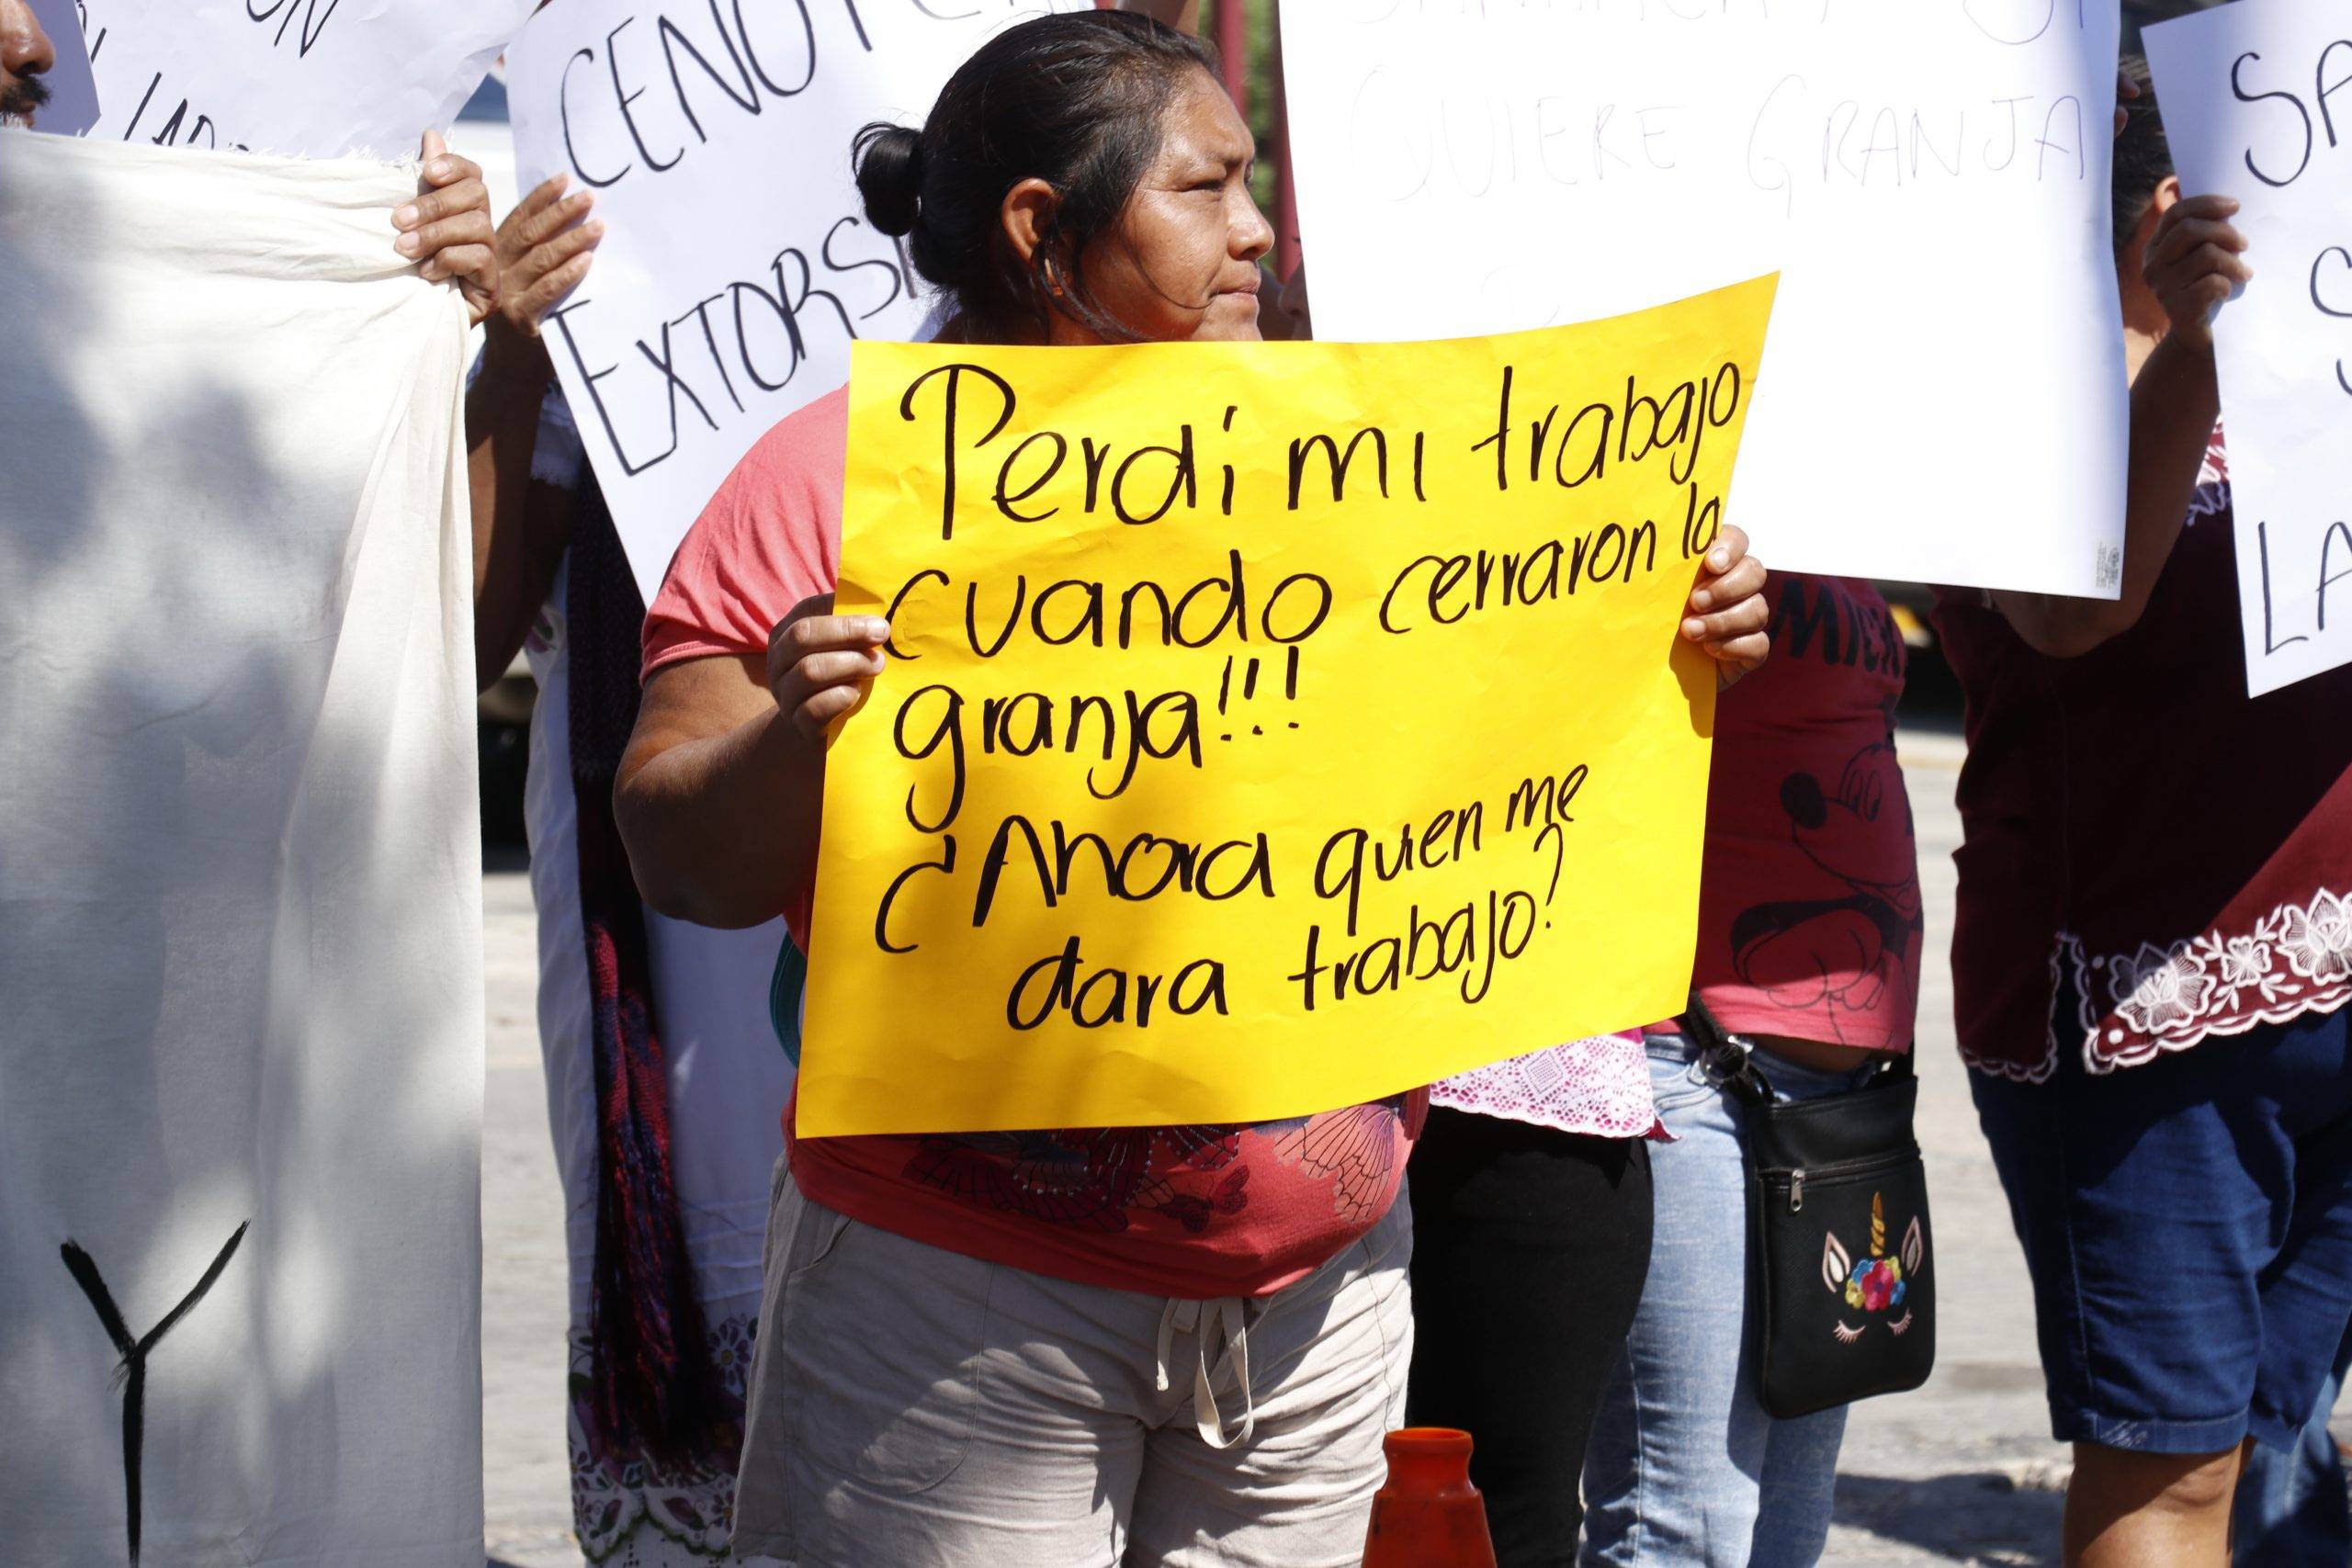 CENOTE
EXTORSI
QUIERE GRANJA
SA
LA
Perdí mi trabajo
cuando cerraron la
granja!!!
¿Ahora quien me
dara trabajo?
Y